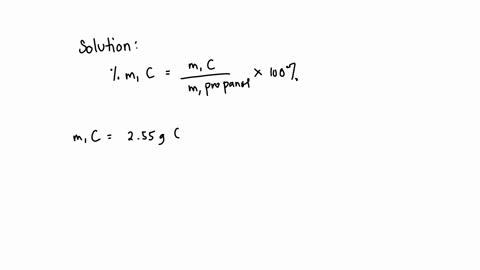 Solution:
% m, C = m, C / m, propanol × 100%
m, C = 2.55 g C